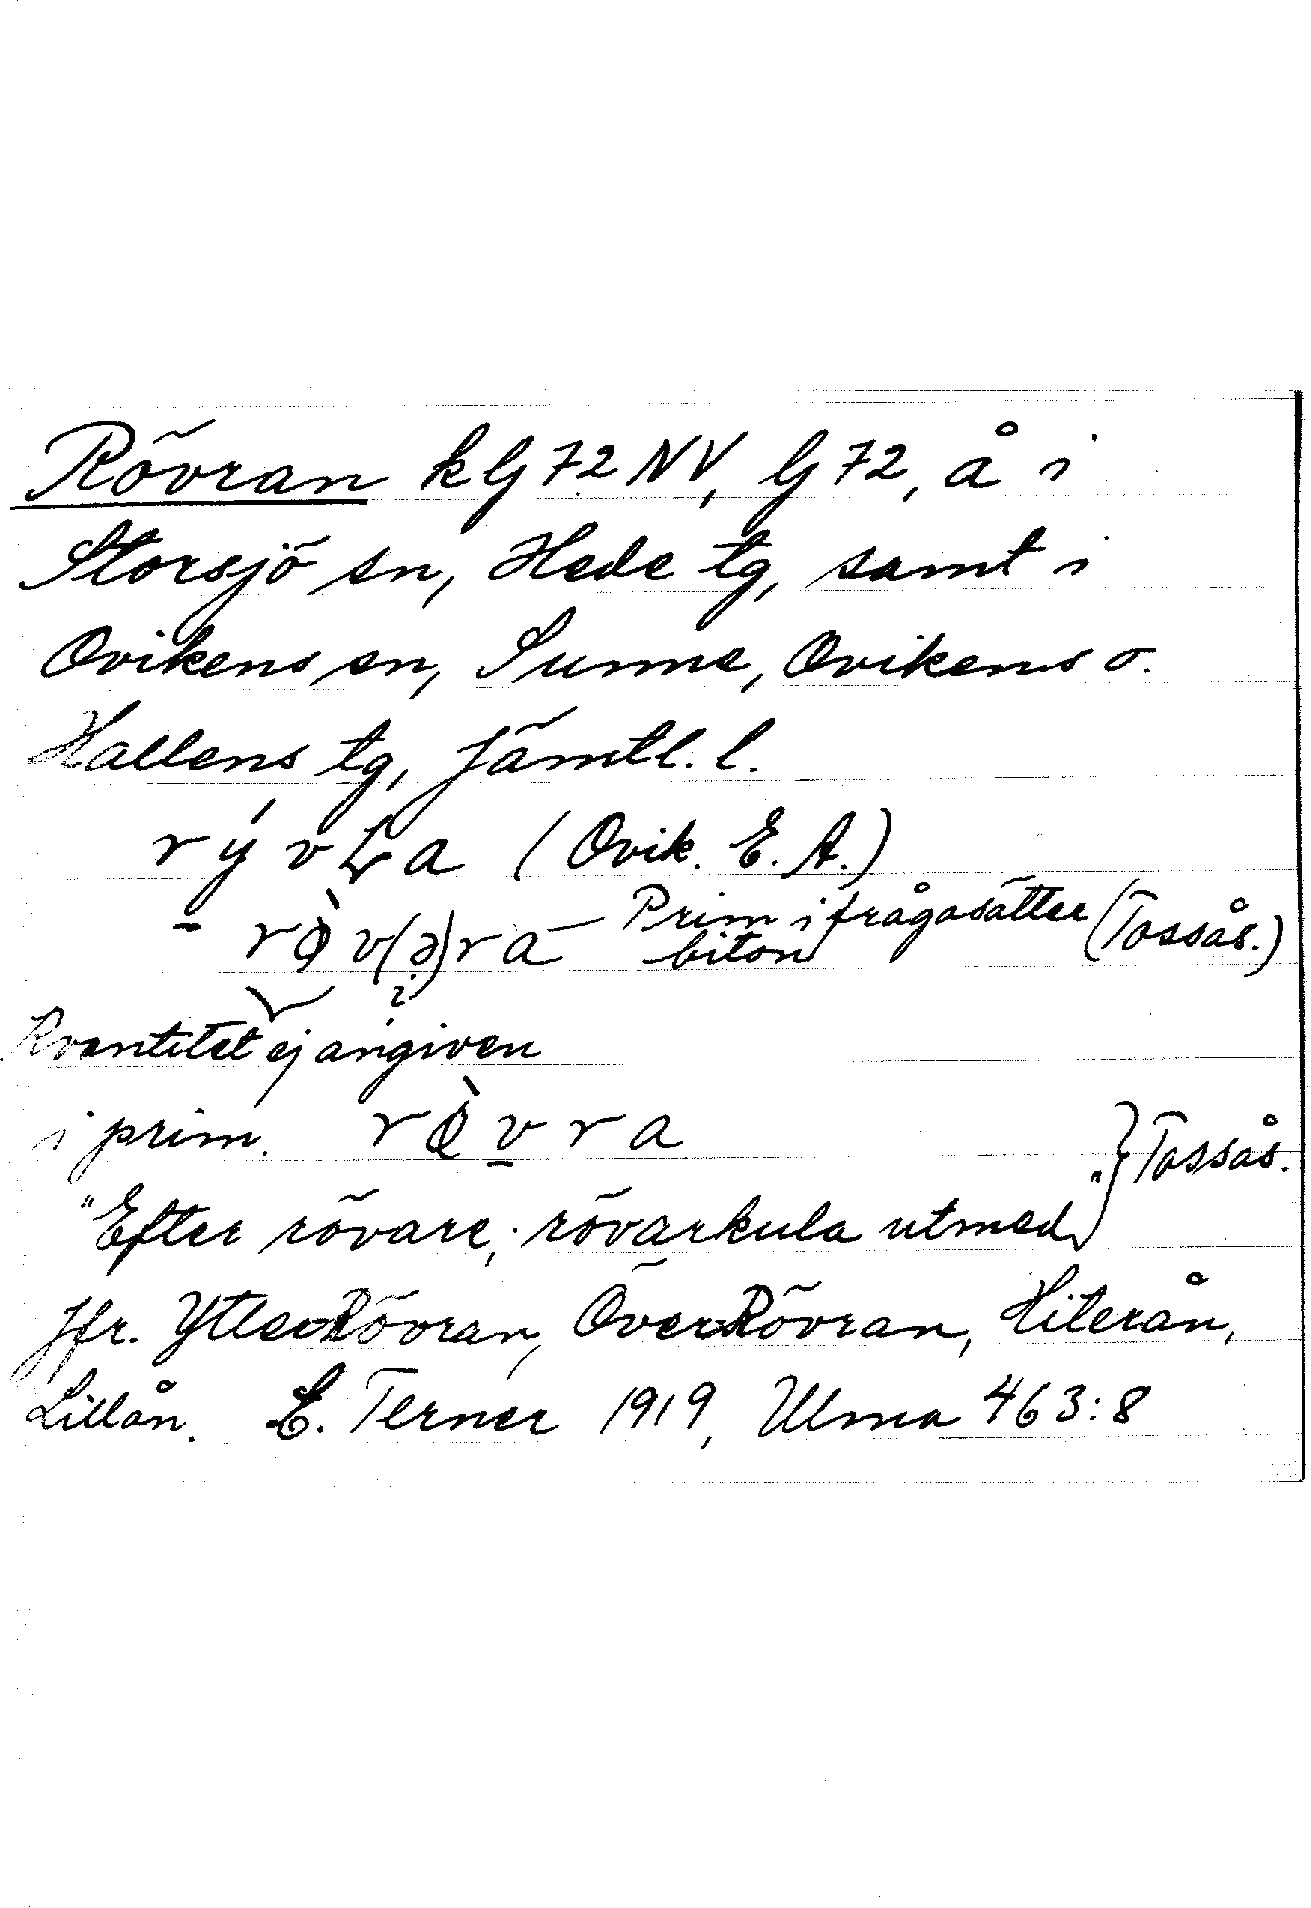 Rövran k G 72 NV, G 72, å i
Storsjö sn, Hede tg, samt i
Ovikens sn, Sunne, Ovikens o.
Hallens tg, Jämtl. l.
(Ovik. E. A.)
Prim i frågasätter (Tossås.)
biton
Kvantitet ej angiven
i prim.
} Tossås.
"Efter rövare; rövarkula utmed"
Jfr. YtterRövran, ÖverRövran, Hiterån,
Lillån. E. Terner 1919, Ulma 463:8